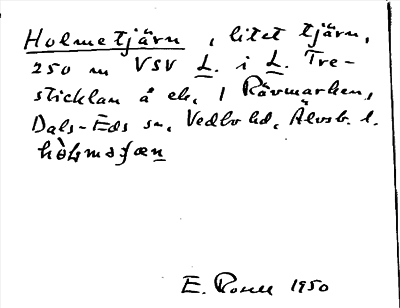 Holmetjärn, litet tjärn,
250 m VSV L. i L. Tre-
sticklan å ek. 1 Rävmarken,
Dals-Eds sn, Vedbo hd, Älvsb. l.
E. 1950